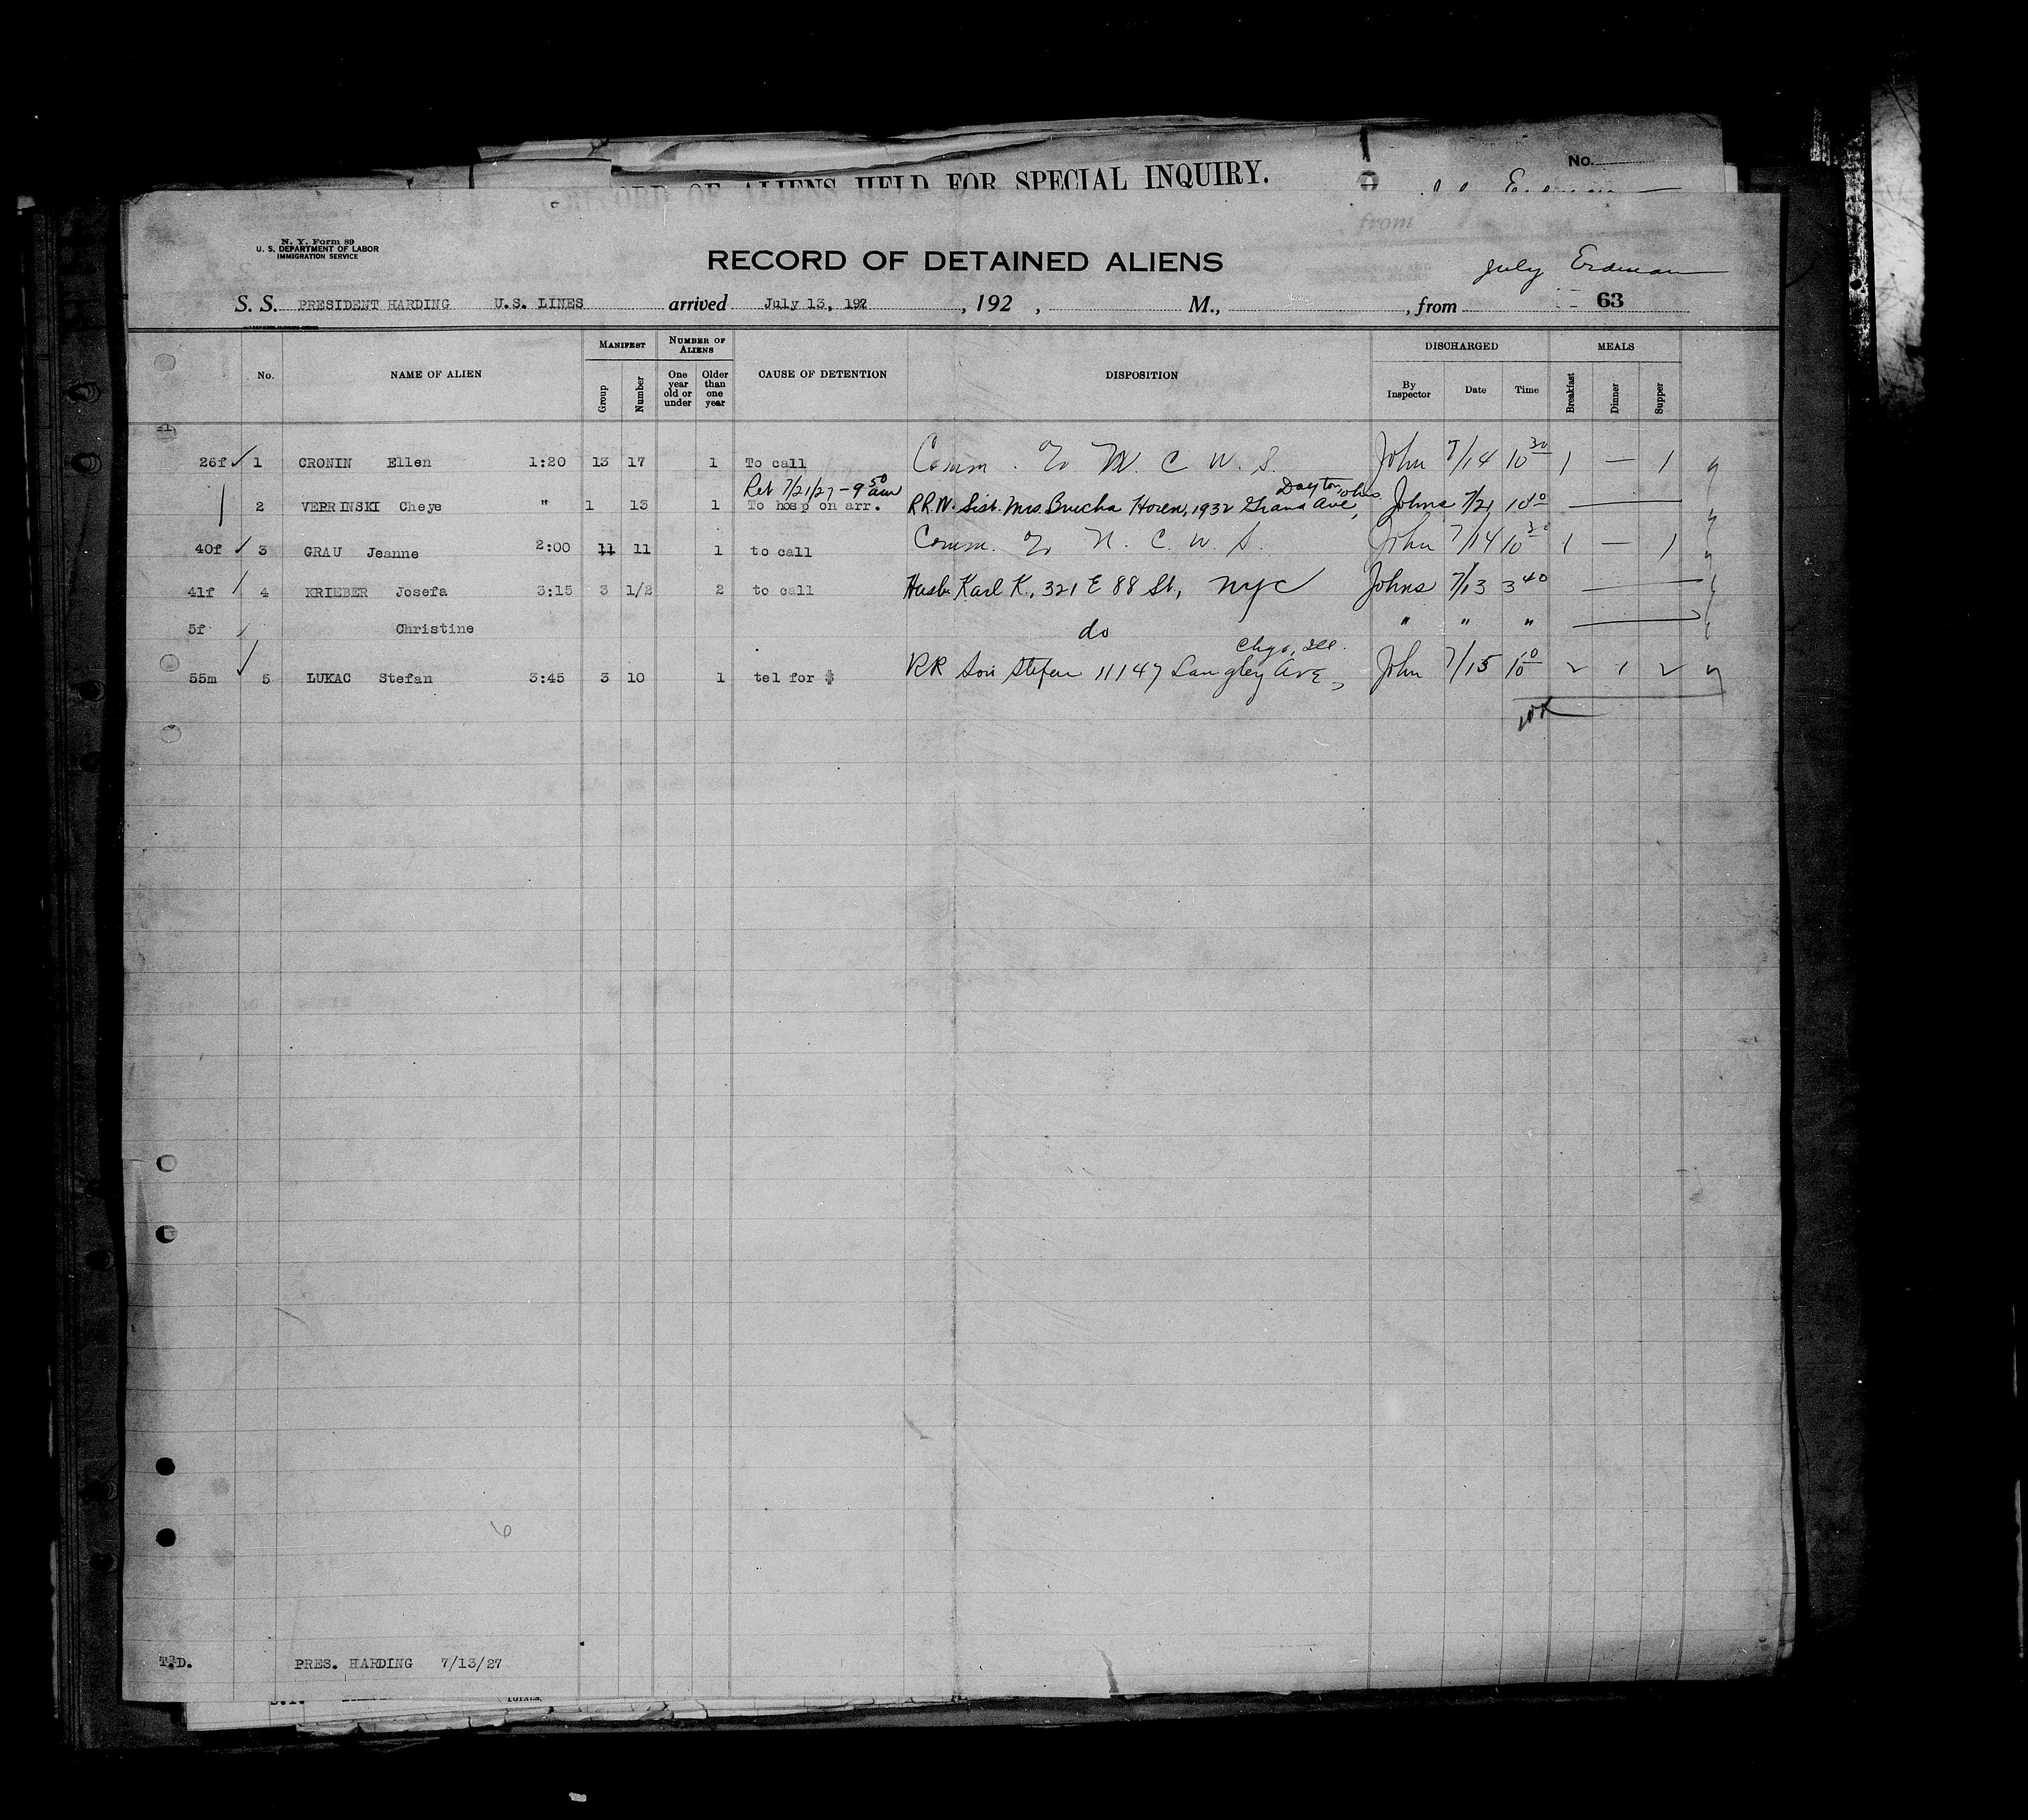 HELD FOR SPECIAL INQUIRY.
No.
N. Y. Form 89
U. S. DEPARTMENT OF LABOR
IMMIGRATION SERVICE
RECORD OF DETAINED ALIENS
July Erdman
S. S. PRESIDENT HARDING U.S. LINES arrived July 13, 192 , 192 , M., , from 63
No. NAME OF ALIEN MANIFEST NUMBER OF ALIENS CAUSE OF DETENTION DISPOSITION DISCHARGED MEALS
Group Number One year old or under Older than one year By Inspector Date Time Breakfast Dinner Supper
26f ✓ 1 CRONIN Ellen 1:20 13 17 1 To call Comm. To M. C. W. S. John 7/14 10 30 1 — 1
Ret 7/21/27 - 9 50 am Dayton, Ohio
2 VERRINSKI Cheye " 1 13 1 To hosp on arr. RR.N. Sist. Mrs. Brucha Horen, 1932 Grand Ave, Johns 7/21 10 10 —
40f ✓ 3 GRAU Jeanne 2:00 11 11 1 to call Comm. To N. C. W. S. John 7/14 10 30 1 — 1
41f 4 KRIEBER Josefa 3:15 3 1/2 2 to call Husb. Karl K., 321 E 88 St, NYC Johns 7/13 3 40 —
5f Christine do " " " —
Chgo, Ill.
55m ✓ 5 LUKAC Stefan 3:45 3 10 1 tel for $ RR Son Stefan 11147 Langley Ave, John 7/15 10 10 2 1 2
6
T.D. PRES. HARDING 7/13/27
TOTALS